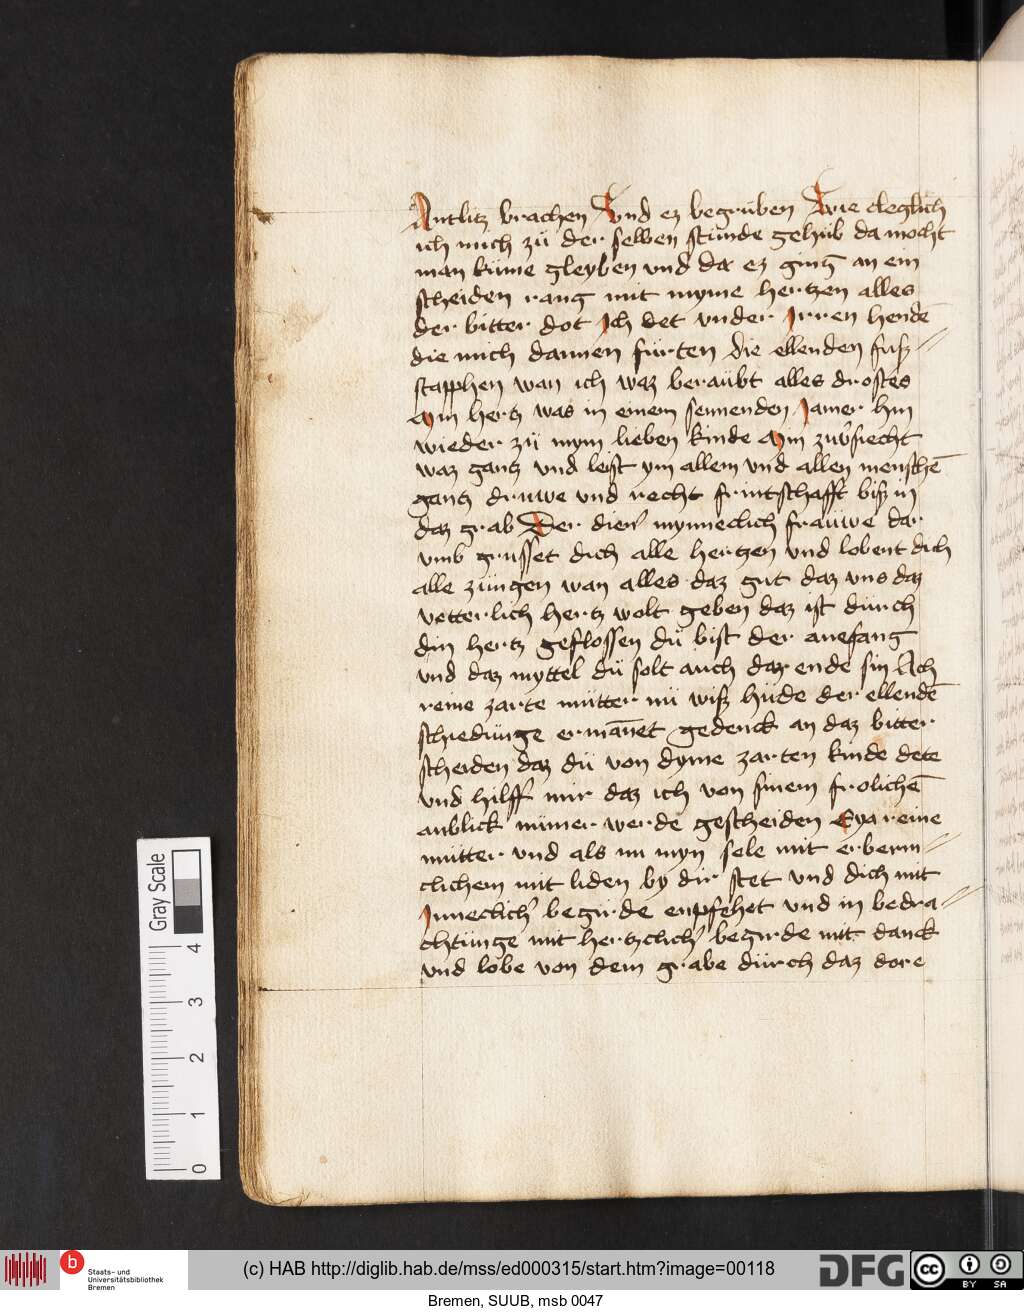 Antlitz brachen Vnd ez begrüben Wie cleglich
ich mich zü der selben stünde gehüb da mocht
man küme gleyben vnd da ez ging an ein
scheiden rang mit myme hertzen alles
der bitter dot Ich det vnder Irren hendē
die mich dannen fürten die ellenden fusz
stapphen wan ich waz beraübt alles drostes
Min hertz was in einem sennenden Iamer hin
wieder zü mym lieben kinde Min zuv͛siecht
waz gantz vnd leist ym allem vnd allen menschē
gantz druwe vnd recht frintschafft bisz in
daz grab Der dien͛ mynneclich fraüwe dar
vmb grusset dich alle hertzen vnd lobent dich
alle züngen wan alles daz gut daz vns daz
vetterlich hertz wolt geben daz ist dürch
din hertz geflossen dü bist der anefang
vnd daz myttel dü solt auch daz ende sin Ach
reine zarte mütter nü wisz hüde der ellendē
schiedünge ermānet gedenck an daz bitter
scheiden daz dü von dyme zarten kinde dete
vnd hilff mir daz ich von sinem frolichē
anblick nümer werde gescheiden Eya reine
mütter vnd als nu myn sele mit erberm
clichem mit liden by dir stet vnd dich mit
Inneclich͛ begirde enpfehet vnd in bedra
chtünge mit hertzclich͛ begirde mit danck
vnd lobe von dem grabe dürch daz dore
Gray Scale
4
3
2
1
0
b
Staats- und
Universitätsbibliothek
Bremen
(c) HAB http://diglib.hab.de/mss/ed000315/start.htm?image=00118
DFG
cc
BY SA
Bremen, SUUB, msb 0047